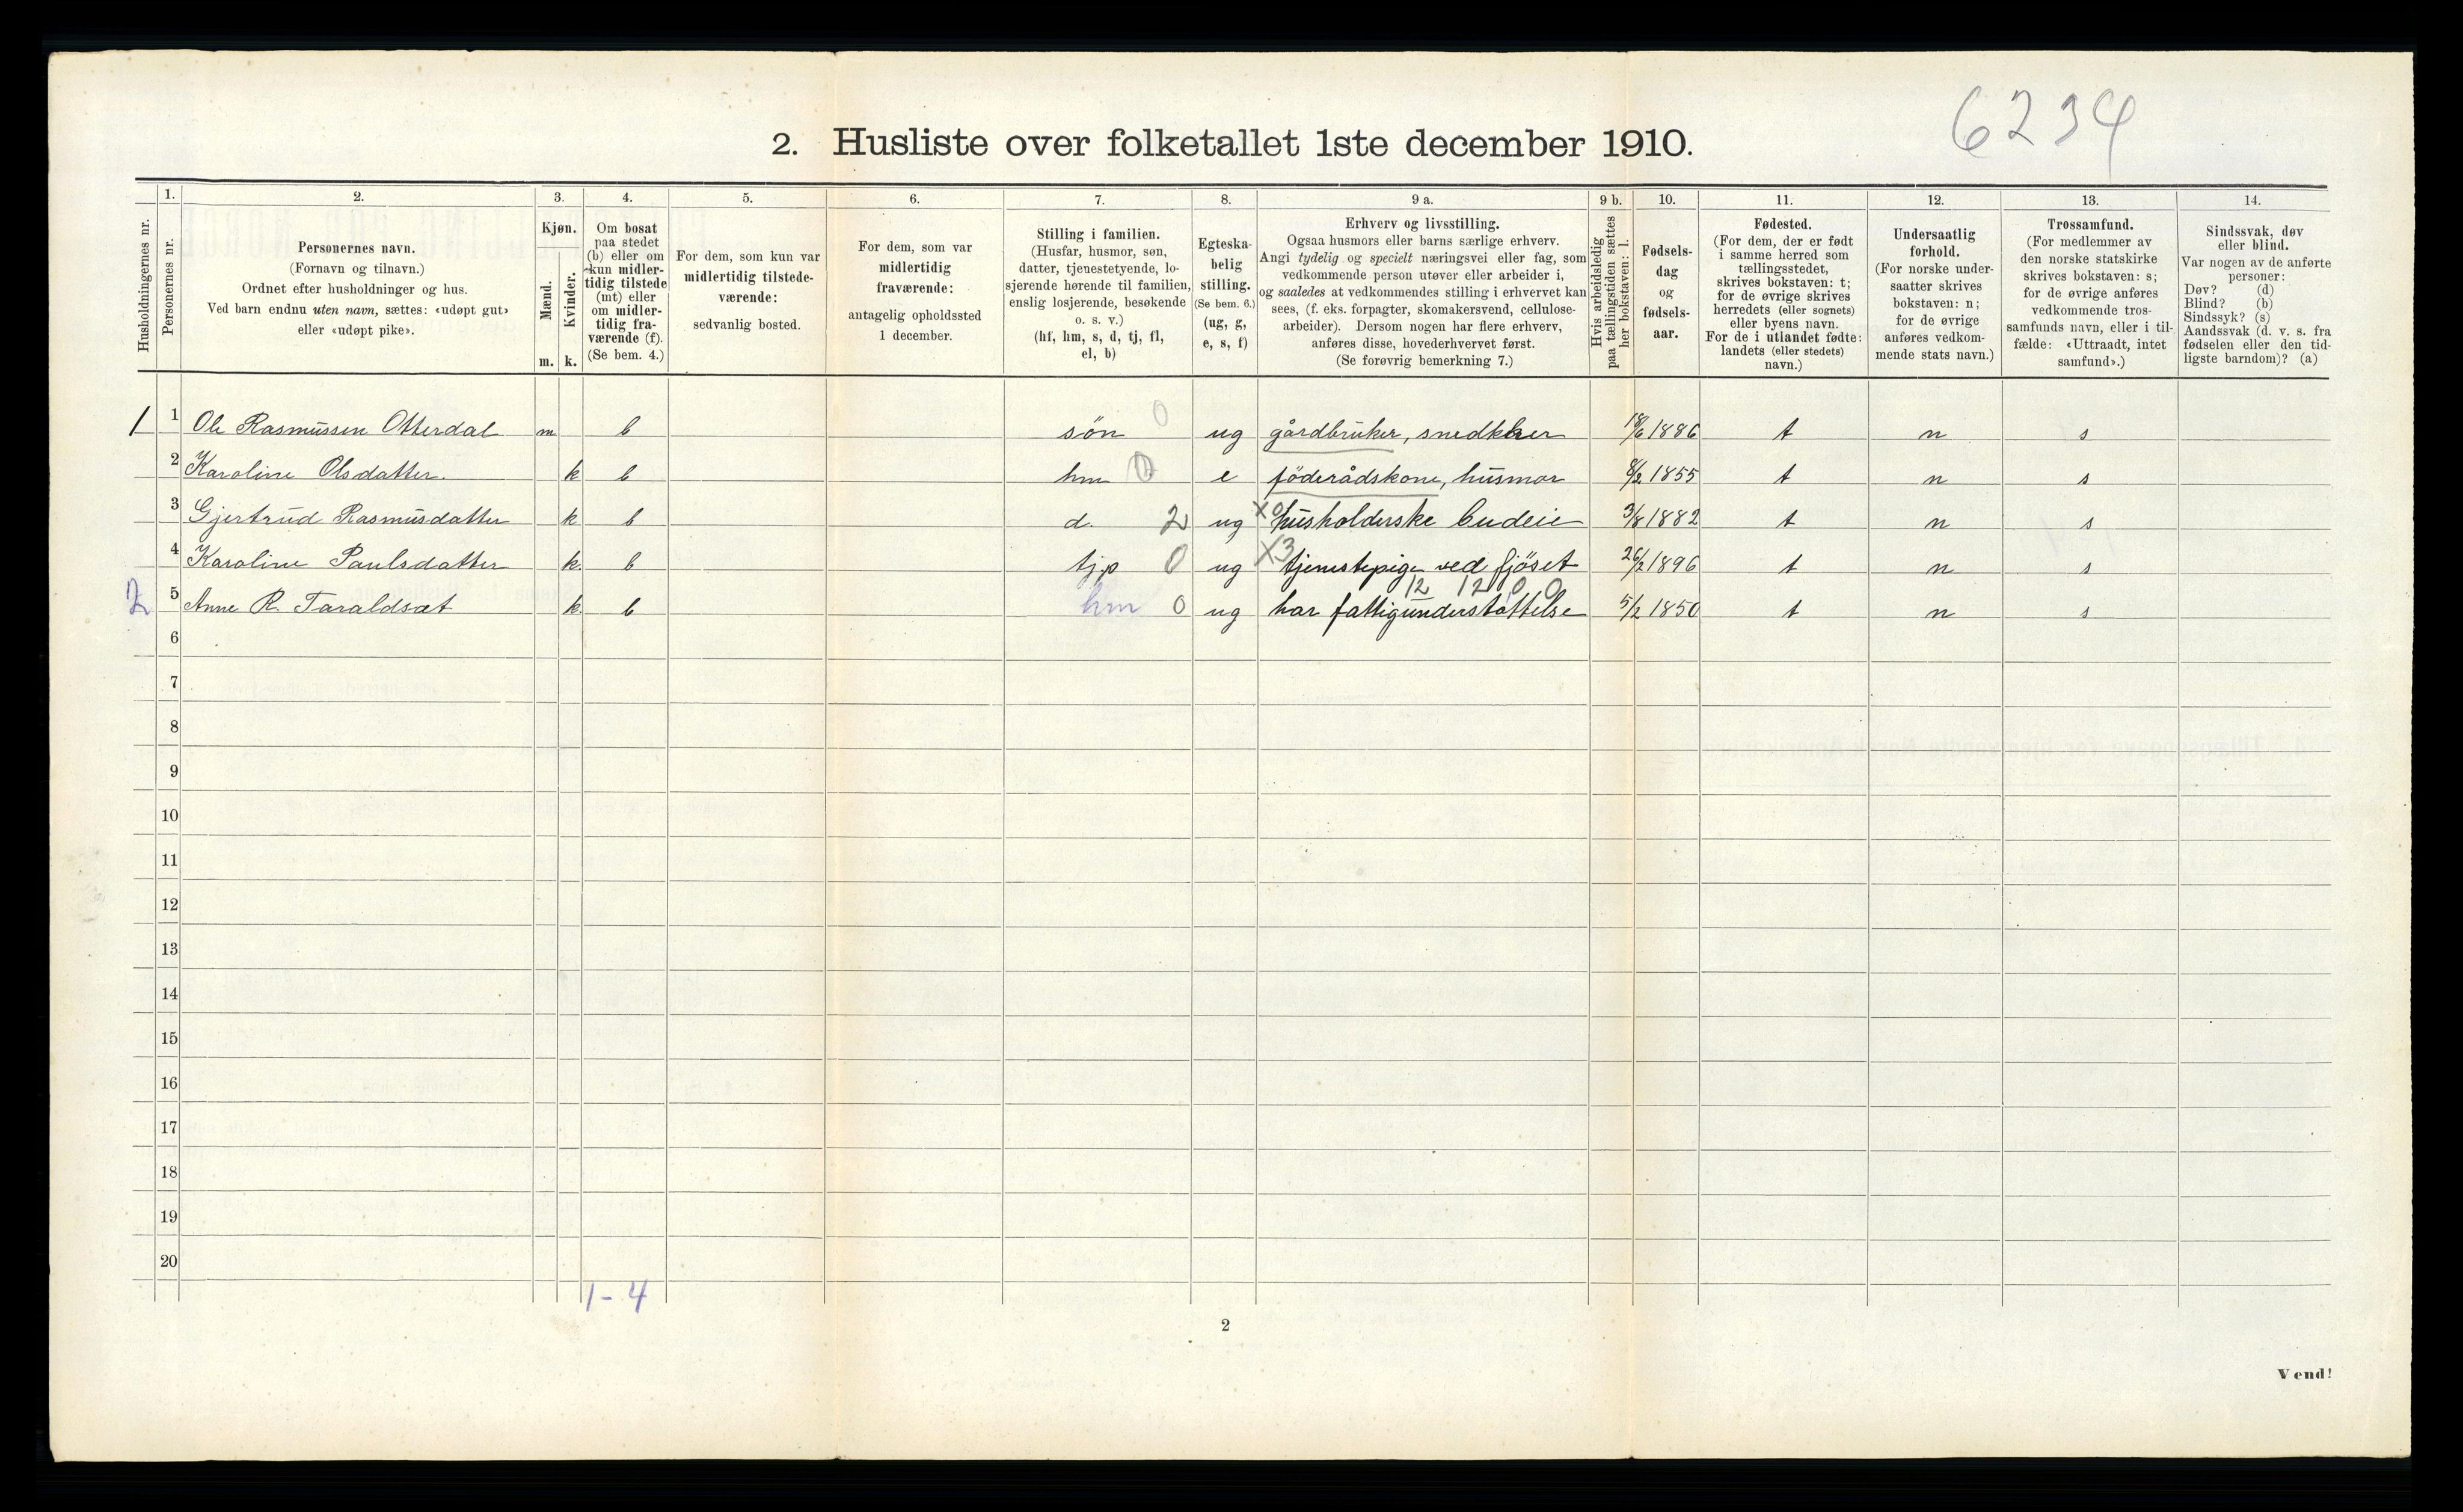 6234
2. Husliste over folketallet 1ste december 1910.
Husholdningernes nr.
1.
Personernes nr.
2.
Personernes navn.
(Fornavn og tilnavn.)
Ordnet efter husholdninger og hus.
Ved barn endnu uten navn, sættes: «udøpt gut»
eller «udøpt pike».
3.
Kjøn.
Mænd.
m.
Kvinder.
k.
4.
Om bosat
paa stedet
(b) eller om
kun midler-
tidig tilstede
(mt) eller
om midler-
tidig fra-
værende (f).
(Se bem. 4.)
5.
For dem, som kun var
midlertidig tilstede-
værende:
sedvanlig bosted.
6.
For dem, som var
midlertidig
fraværende:
antagelig opholdssted
1 december.
7.
Stilling i familien.
(Husfar, husmor, søn,
datter, tjenestetyende, lo-
sjerende hørende til familien,
enslig losjerende, besøkende
o. s. v.)
(hf, hm, s, d, tj, fl,
el, b)
8.
Egteska-
belig
stilling.
(Se bem. 6.)
(ug, g,
e, s, f)
9 a.
Erhverv og livsstilling.
Ogsaa husmors eller barns særlige erhverv.
Angi tydelig og specielt næringsvei eller fag, som
vedkommende person utøver eller arbeider i,
og saaledes at vedkommendes stilling i erhvervet kan
sees, (f. eks. forpagter, skomakersvend, cellulose-
arbeider). Dersom nogen har flere erhverv,
anføres disse, hovederhvervet først.
(Se forøvrig bemerkning 7.)
9 b.
Hvis arbeidsledig
paa tællingstiden sættes
her bokstaven: l.
10.
Fødsels-
dag
og
fødsels-
aar.
11.
Fødested.
(For dem, der er født
i samme herred som
tællingsstedet,
skrives bokstaven: t;
for de øvrige skrives
herredets (eller sognets)
eller byens navn.
For de i utlandet fødte:
landets (eller stedets)
navn.)
12.
Undersaatlig
forhold.
(For norske under-
saatter skrives
bokstaven: n;
for de øvrige
anføres vedkom-
mende stats navn.)
13.
Trossamfund.
(For medlemmer av
den norske statskirke
skrives bokstaven: s;
for de øvrige anføres
vedkommende tros-
samfunds navn, eller i til-
fælde: «Uttraadt, intet
samfund».)
14.
Sindssvak, døv
eller blind.
Var nogen av de anførte
personer:
Døv? (d)
Blind? (b)
Sindssyk? (s)
Aandssvak (d. v. s. fra
fødselen eller den tid-
ligste barndom)? (a)
1 1 Ole Rasmussen Otterdal m b søn 0 ug gårdbruker, snedkker 18/6 1886 t n s
2 Karoline Olsdatter. k b hm 0 e föderådskone, husmor 8/2 1855 t n s
3 Gjertrud Rasmusdatter k b d. 2 ug X0 husholderske budeie 3/8 1882 t n s
4 Karoline Paulsdatter k. b tj.p 0 ug X3 tjenestepige ved fjöset 26/2 1896 t n s
12 1200
2 5 Anne R. Taraldsæt k b hm 0 ug har fattigunderstøttelse 5/2 1850 t n s
6
7
8
9
10
11
12
13
14
15
16
17
18
19
20
1-4
2
Vend!